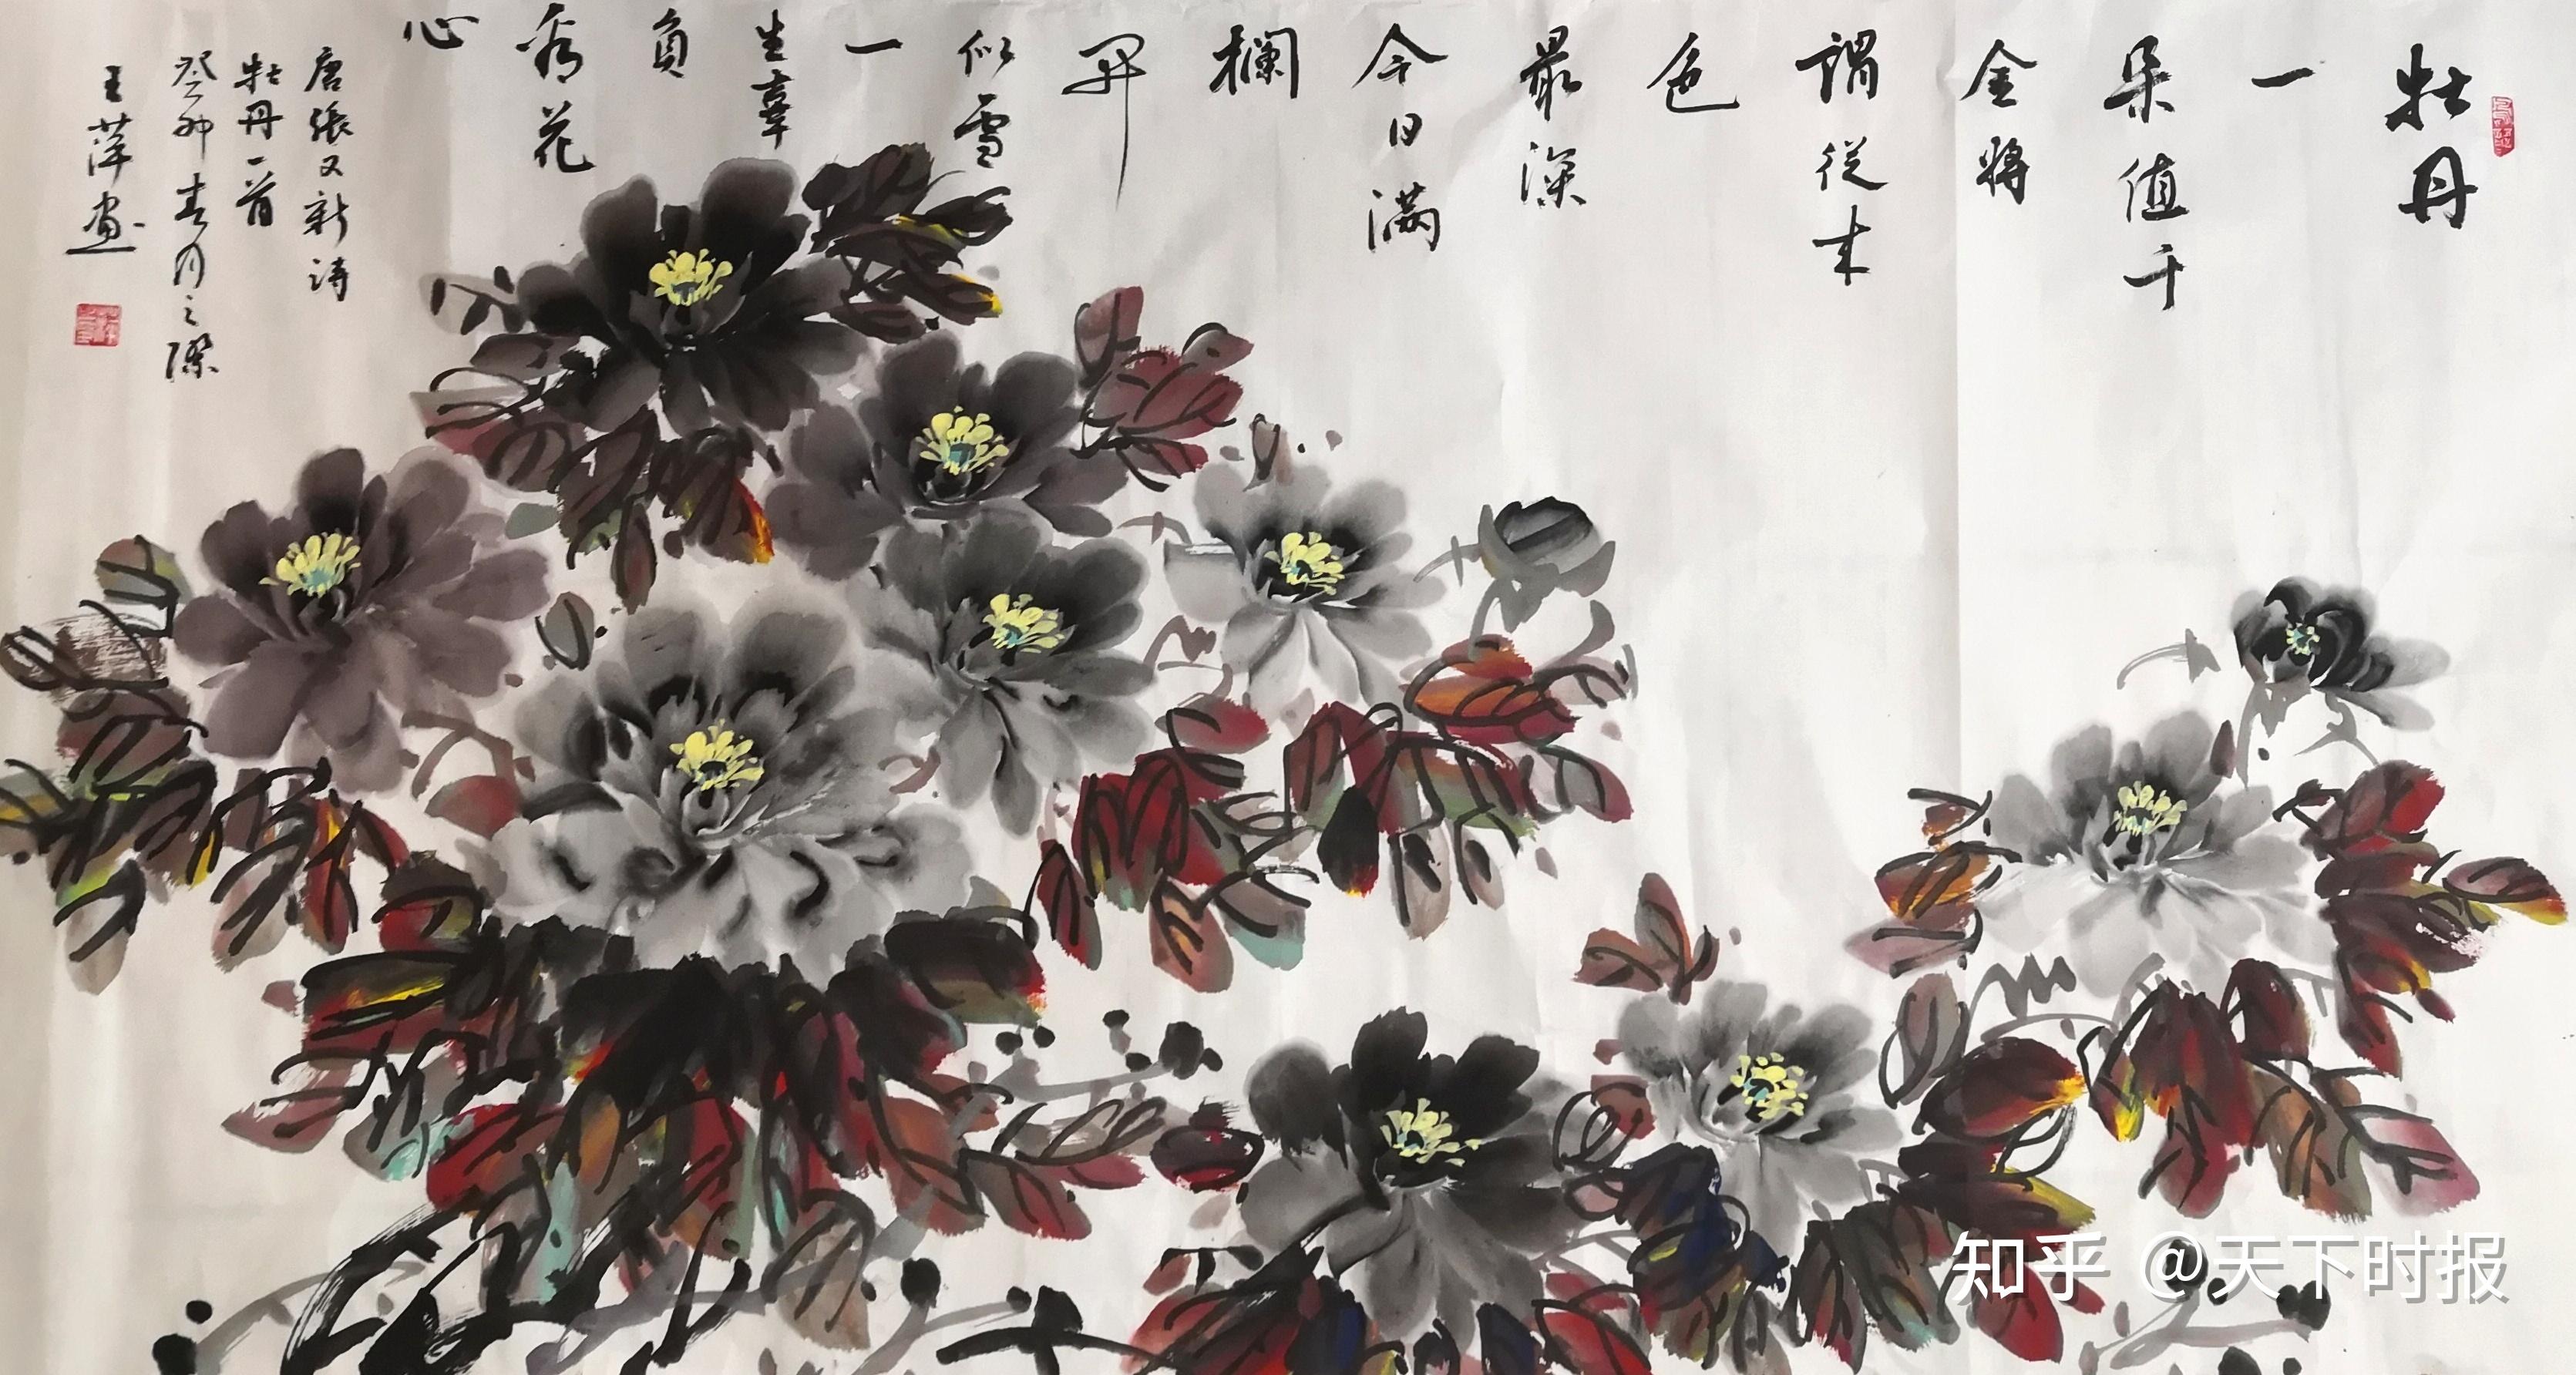 牡丹
一
朵值千
金將
謂從来
色
最深
今日滿
欄
開
似雪
一
生辜
負
看花
心
唐張又新诗
牡丹一首
癸卯春月之際
王萍画
知乎 @天下时报